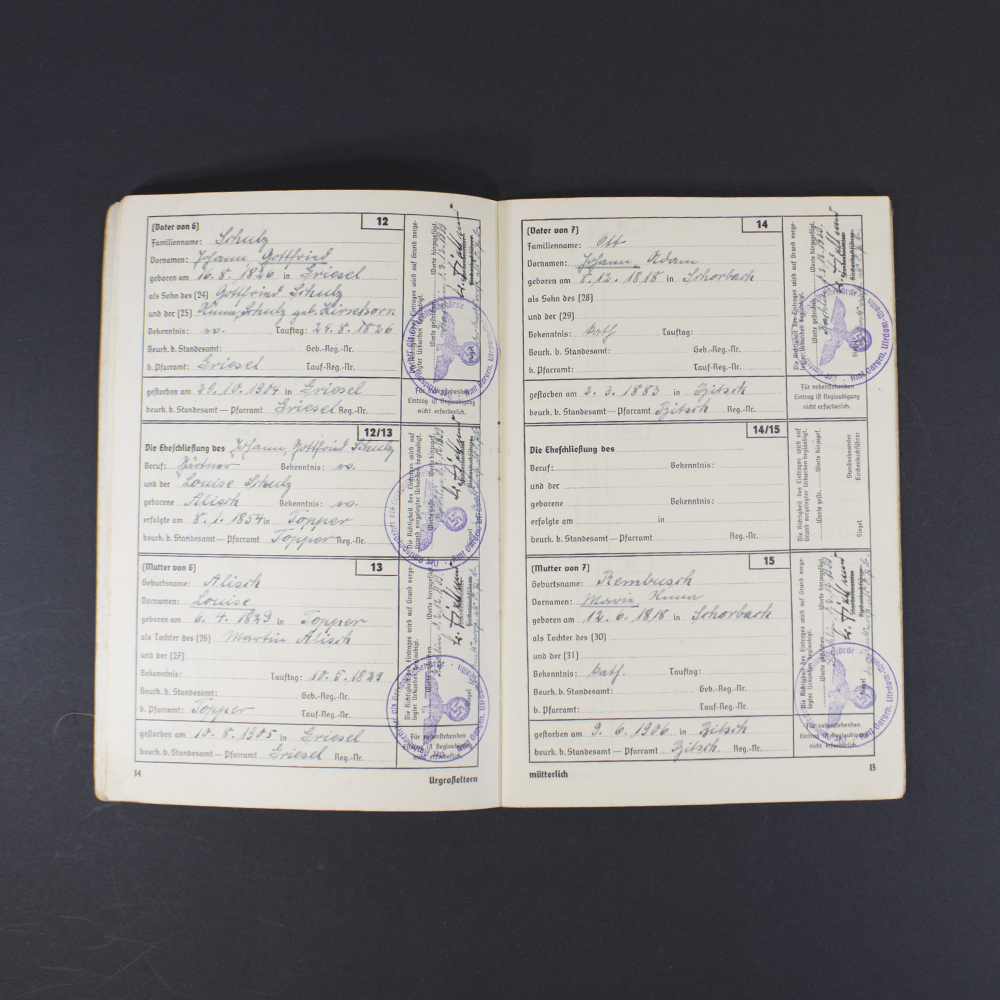 12
(Vater von 6)
Familienname: Schulz
Vornamen: Johann Gottfried
geboren am 16. 8. 1826 in Griesel
als Sohn des (24) Gottfried Schulz
und der (25) Schulz geb.
Bekenntnis: ev. Tauftag: 24. 8. 1826
Beurk. b. Standesamt: Geb.-Reg.-Nr.
b. Pfarramt: Griesel Tauf-Reg.-Nr.
gestorben am 20. 10. 1904 in Griesel
beurk. b. Standesamt — Pfarramt Griesel Reg.-Nr.
Die Richtigkeit des Eintrages wird auf Grund vorge-
legter Urkunden beglaubigt.
Worte hinzugefügt.
Worte gestrichen
Siegel
Für nebenstehenden
Eintrag ist Beglaubigung
nicht erforderlich.
12/13
Die Eheschließung des Johann Gottfried Schulz
Beruf: Gärtner Bekenntnis: ev.
und der Louise Schulz
geborene Alisch Bekenntnis: ev.
erfolgte am 8. 1. 1854 in Topper
beurk. b. Standesamt — Pfarramt Topper Reg.-Nr.
Die Richtigkeit des Eintrages wird auf
Grund vorgelegter Urkunden beglaubigt.
13
(Mutter von 6)
Geburtsname: Alisch
Vornamen: Louise
geboren am 6. 4. 1829 in Topper
als Tochter des (26) Martin Alisch
und der (27)
Bekenntnis: Tauftag: 10. 5. 1829
Beurk. b. Standesamt: Geb.-Reg.-Nr.
b. Pfarramt: Topper Tauf-Reg.-Nr.
gestorben am 10. 8. 1905 in Griesel
beurk. b. Standesamt — Pfarramt Griesel Reg.-Nr.
Die Richtigkeit des Eintrages wird auf Grund vorge-
legter Urkunden beglaubigt.
Worte hinzugefügt.
Siegel
Für nebenstehenden
Eintrag ist Beglaubigung
nicht erforderlich.
14
Urgroßeltern
14
(Vater von 7)
Familienname: Ott
Vornamen: Johann Adam
geboren am 8. 12. 1818 in Schorbach
als Sohn des (28)
und der (29)
Bekenntnis: kath. Tauftag:
Beurk. b. Standesamt: Geb.-Reg.-Nr.
b. Pfarramt: Tauf-Reg.-Nr.
gestorben am 2. 3. 1883 in Bitsch
beurk. b. Standesamt — Pfarramt Bitsch Reg.-Nr.
Die Richtigkeit des Eintrages wird auf Grund vorge-
legter Urkunden beglaubigt.
Worte hinzugefügt.
Worte gestrichen
Siegel
Für nebenstehenden
Eintrag ist Beglaubigung
nicht erforderlich.
14/15
Die Eheschließung des
Beruf: Bekenntnis:
und der
geborene Bekenntnis:
erfolgte am in
beurk. b. Standesamt — Pfarramt Reg.-Nr.
Die Richtigkeit des Eintrages wird auf
Grund vorgelegter Urkunden beglaubigt.
Worte gestr. Worte hinzugef.
Standesbeamter
Kirchenbuchführer
Siegel
15
(Mutter von 7)
Geburtsname: Rembusch
Vornamen: Maria Anna
geboren am 12. 6. 1818 in Schorbach
als Tochter des (30)
und der (31)
Bekenntnis: kath. Tauftag:
Beurk. b. Standesamt: Geb.-Reg.-Nr.
b. Pfarramt: Tauf-Reg.-Nr.
gestorben am 9. 6. 1906 in Bitsch
beurk. b. Standesamt — Pfarramt Bitsch Reg.-Nr.
Die Richtigkeit des Eintrages wird auf Grund vorge-
legter Urkunden beglaubigt.
Worte hinzugefügt.
Siegel
Für nebenstehenden
Eintrag ist Beglaubigung
nicht erforderlich.
mütterlich
15